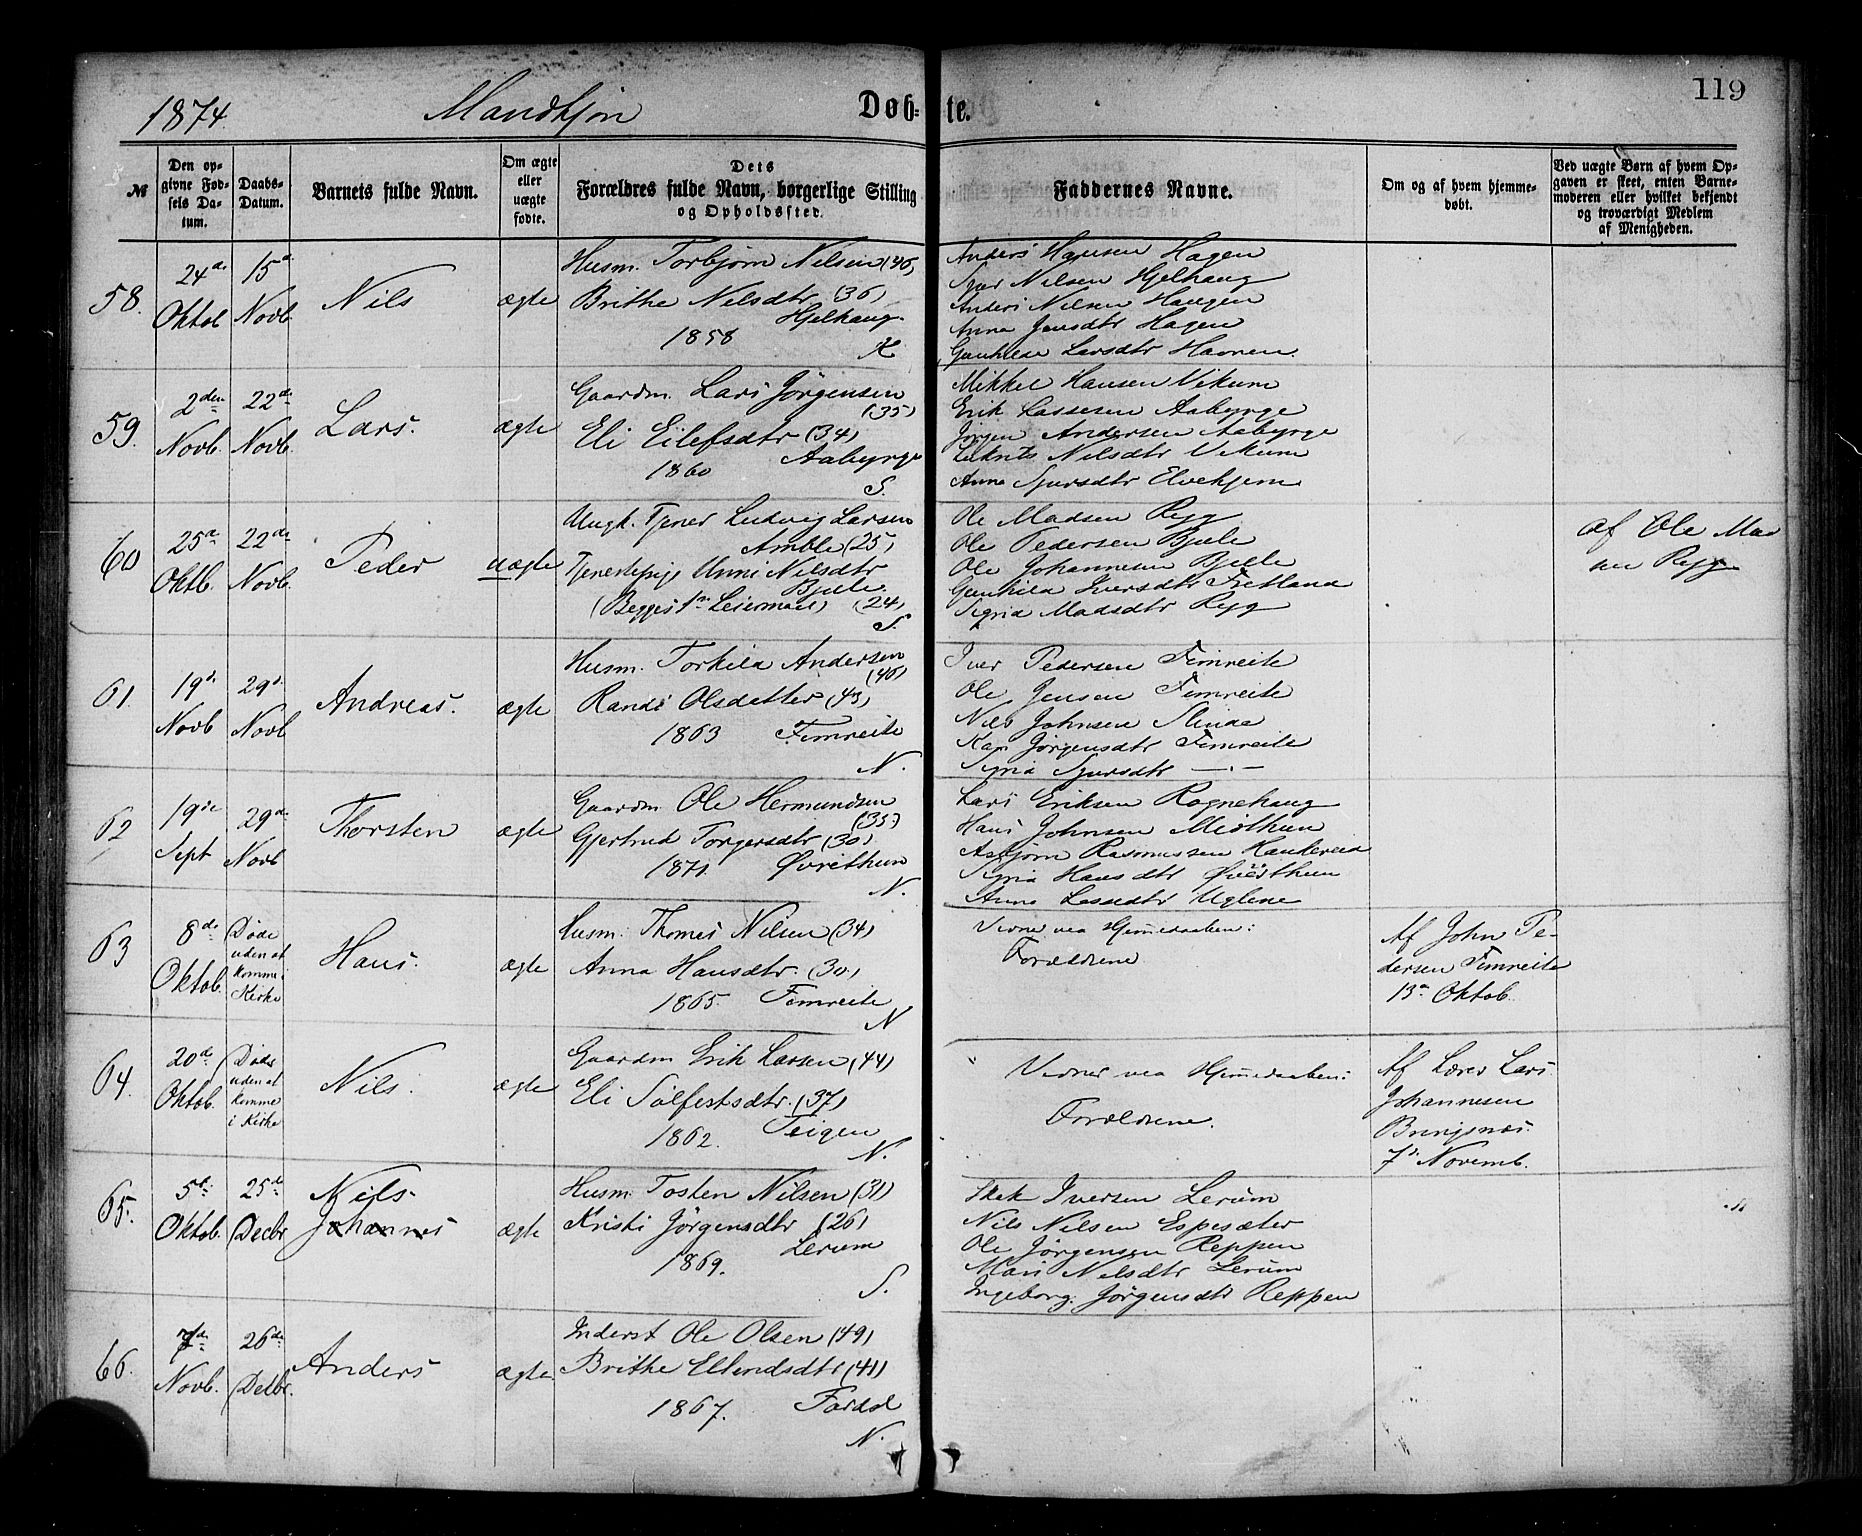 119
1874. Mandkjøn Døb- te.
№ Den opgivne Fødsels Datum. Daabs-Datum. Barnets fulde Navn. Om ægte eller uægte fødte. Dets Forældres fulde Navn, borgerlige Stilling og Opholdssted. Faddernes Navne. Om og af hvem hjemmedøbt. Ved uægte Børn af hvem Opgaven er skeet, enten Barnemoderen eller hvilket bekjendt og troværdigt Medlem af Menigheden.
58. 24de Oktob 15d Novb. Nils ægte
Husm. Torbjørn Nilsen (46)
Brithe Nilsdtr (36)
Hjelhaug.
1858
K
Anders Hansen Hagen
Sjur Nilsen Hjelhaug
Anders Nilsen Haugen
Anna Jensdtr Hagen
Gunhild Larsdtr Havnen.
59. 2den Novb. 22de Novb. Lars. ægte
Gaardm. Lars Jørgensen
(35)
Eli Eilefsdtr (34)
1860 Aabyrge
S.
Mikkel Hansen Vikum
Erik Lassesen Aabyrge
Jørgen Andersen Aabyrge
Nilsdtr Vikum
Anna Sjursdtr Elvekjem
60 25d Oktb. 22de Novb. Peder uægte
Ungk. Tjener Ludvig Larsen
Amble (25)
Tjenestepige Unni Nilsdtr
Bjelle
(Begges 1ste Leiermaal) (24)
S.
Ole Madsen Rygg
Ole Pedersen Bjelle
Ole Johannesen Bjelle
Gunhild Iversdtr Fretland
Sigrid Madsdtr Rygg
af Ole Mad
sen Rygg
61. 19d. Novb 29d. Novb Andreas. ægte
Husm. Torkild Andersen
(46)
Randi Olsdatter (43)
1863 Fimreite
N.
Iver Pedersen Fimreite
Ole Jensen Fimreite
Nils Johnsen Slinde
Kari Jørgensdtr Fimreite
Sigrid Sjursdtr — . —
62 19de Sept 29de Novb Thorsten ægte
Gaardm Ole Hermundsen
(35)
Gjertrud Torgersdtr (30)
1871. Øvrethun
N.
Lars Eriksen Rognehaug
Hans Johnsen Midthun
Asbjørn Rasmussen
Sigrid Hansdtr Øvrethun
Anna Lassedtr Uglene
63 8de Oktob. Døde uden at komme i Kirke Hans. ægte
Husm. Thomas Nilsen (34)
Anna Hansdtr. (30)
1865. Fimreite
N
Vidner ved Hjemmedaaben:
Forældrene
Af John Pe-
dersen Fimreite
13de Oktob.
64. 20de Oktob. Døde uden at komme i Kirke Nils. ægte
Gaardm Erik Larsen (44)
Eli Solfestsdtr. (37)
1862. Teigen
N.
Vidner ved Hjemmedaaben:
Forældrene.
Af Lærer Lars
Johannesen
Bringsnæs.
7de Novemb.
65. 5te Oktob. 25de Decbr Nils Johannes ægte
Husm. Tosten Nilsen (31)
Kristi Jørgensdtr (26)
Lerum
1869.
S.
Iversen Lerum
Nils Nilsen Espesæter
Ole Jørgensen Reppen
Mari Nilsdtr Lerum
Ingeborg Jørgensdtr Reppen
66. 7de Novb. 26de Decbr. Anders ægte
Inderst Ole Olsen (49)
Brithe Ellendsdtr (41)
1867. Fardal
N.